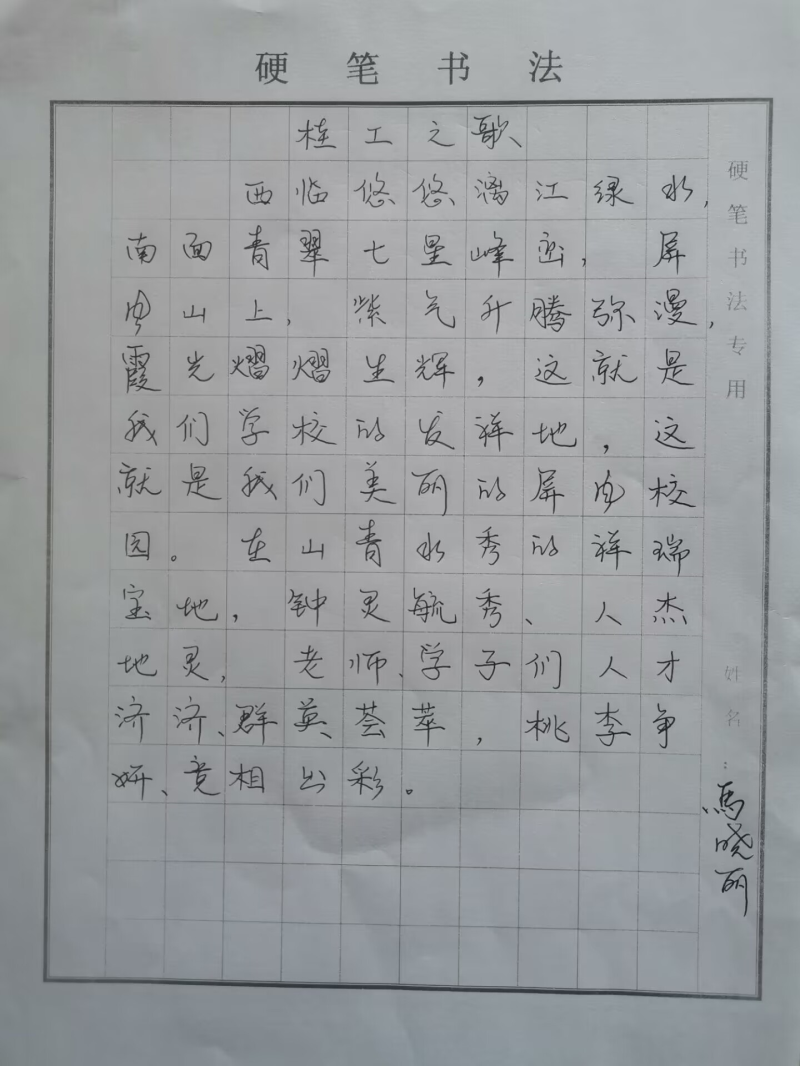 硬笔书法
桂工之歌
西临悠悠漓江绿水,
南面青翠七星峰峦,屏
山上,紫气升腾弥漫,
霞光熠熠生辉,这就是
我们学校的发祥地,这
就是我们美丽的屏校
园。在山青水秀的祥瑞
宝地,钟灵毓秀、人杰
地灵,老师、学子们人才
济济、群英荟萃,桃李争
妍、竞相出彩。
硬笔书法专用
姓名:
馬晓丽